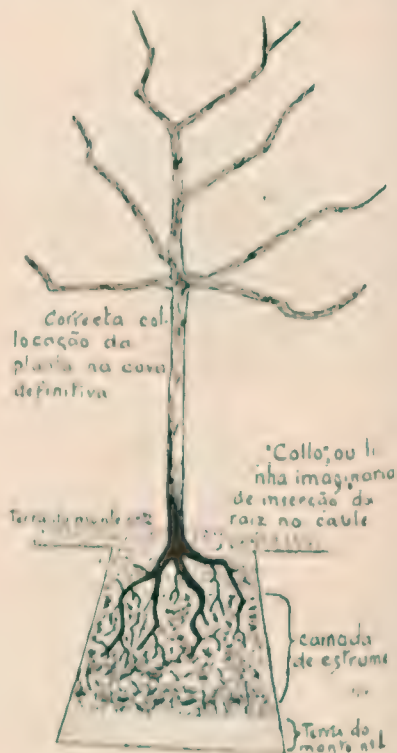 Correcta col-
locação da
planta na cova
definitiva
"Collo", ou li
nha imaginaria
de inserção da
raiz no caule
Terra do monte nº2
camada
de estrume
Terra do
monte nº1